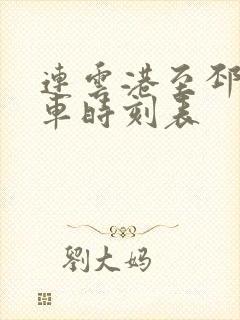 連雲港至邳
車時刻表
劉大妈